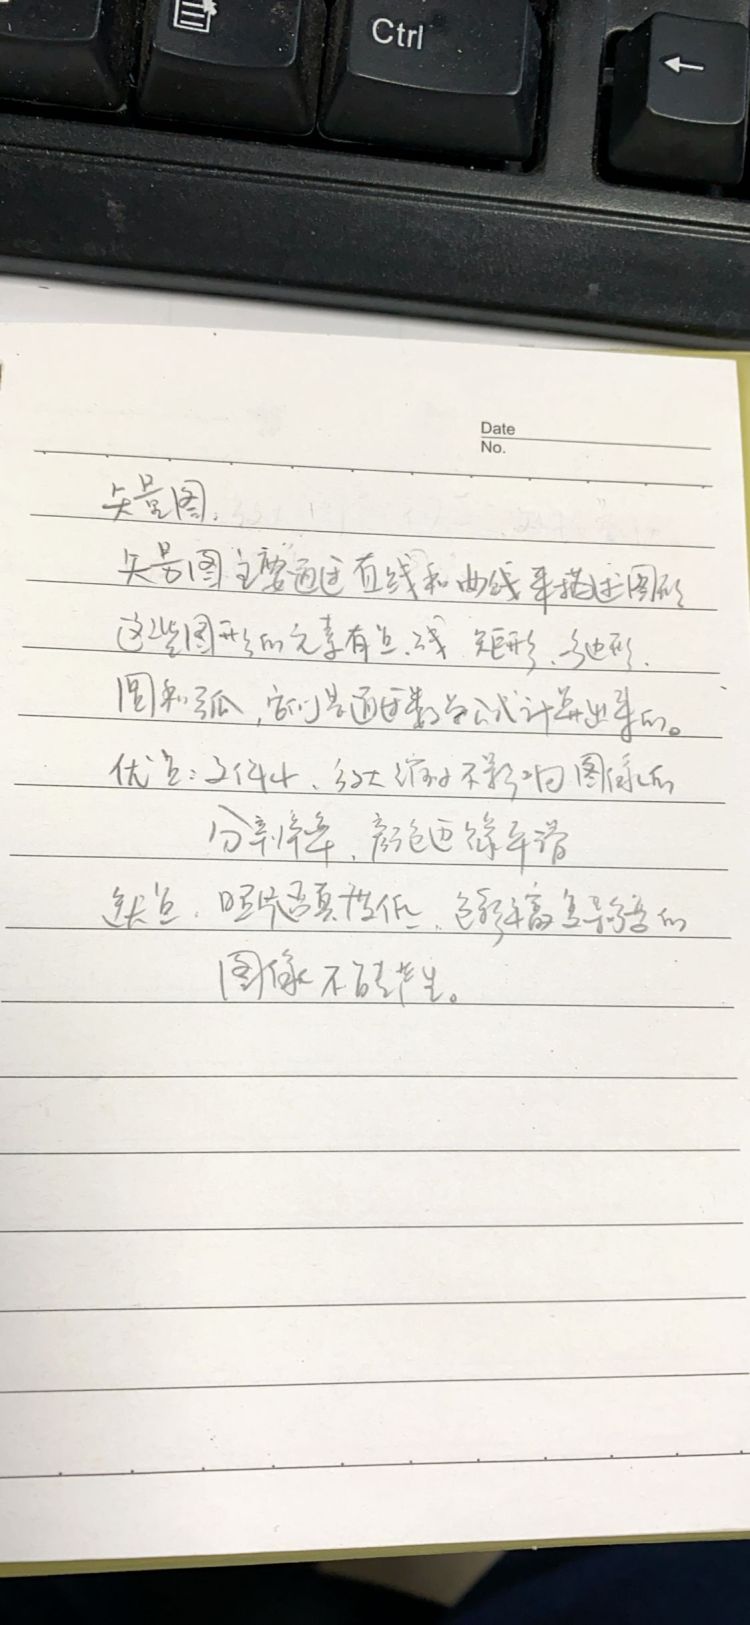 Ctrl
Date
No.
矢量图:
矢量图主要通过直线和曲线来描述图形
这些图形的元素有点、线、矩形、多边形、
圆和弧,它们是通过数学公式计算出来的。
优点:文件小、放大缩小不影响图像的
分辨率、颜色边缘平滑
缺点、照片逼真性低、色彩丰富复杂的
图像不能产生。